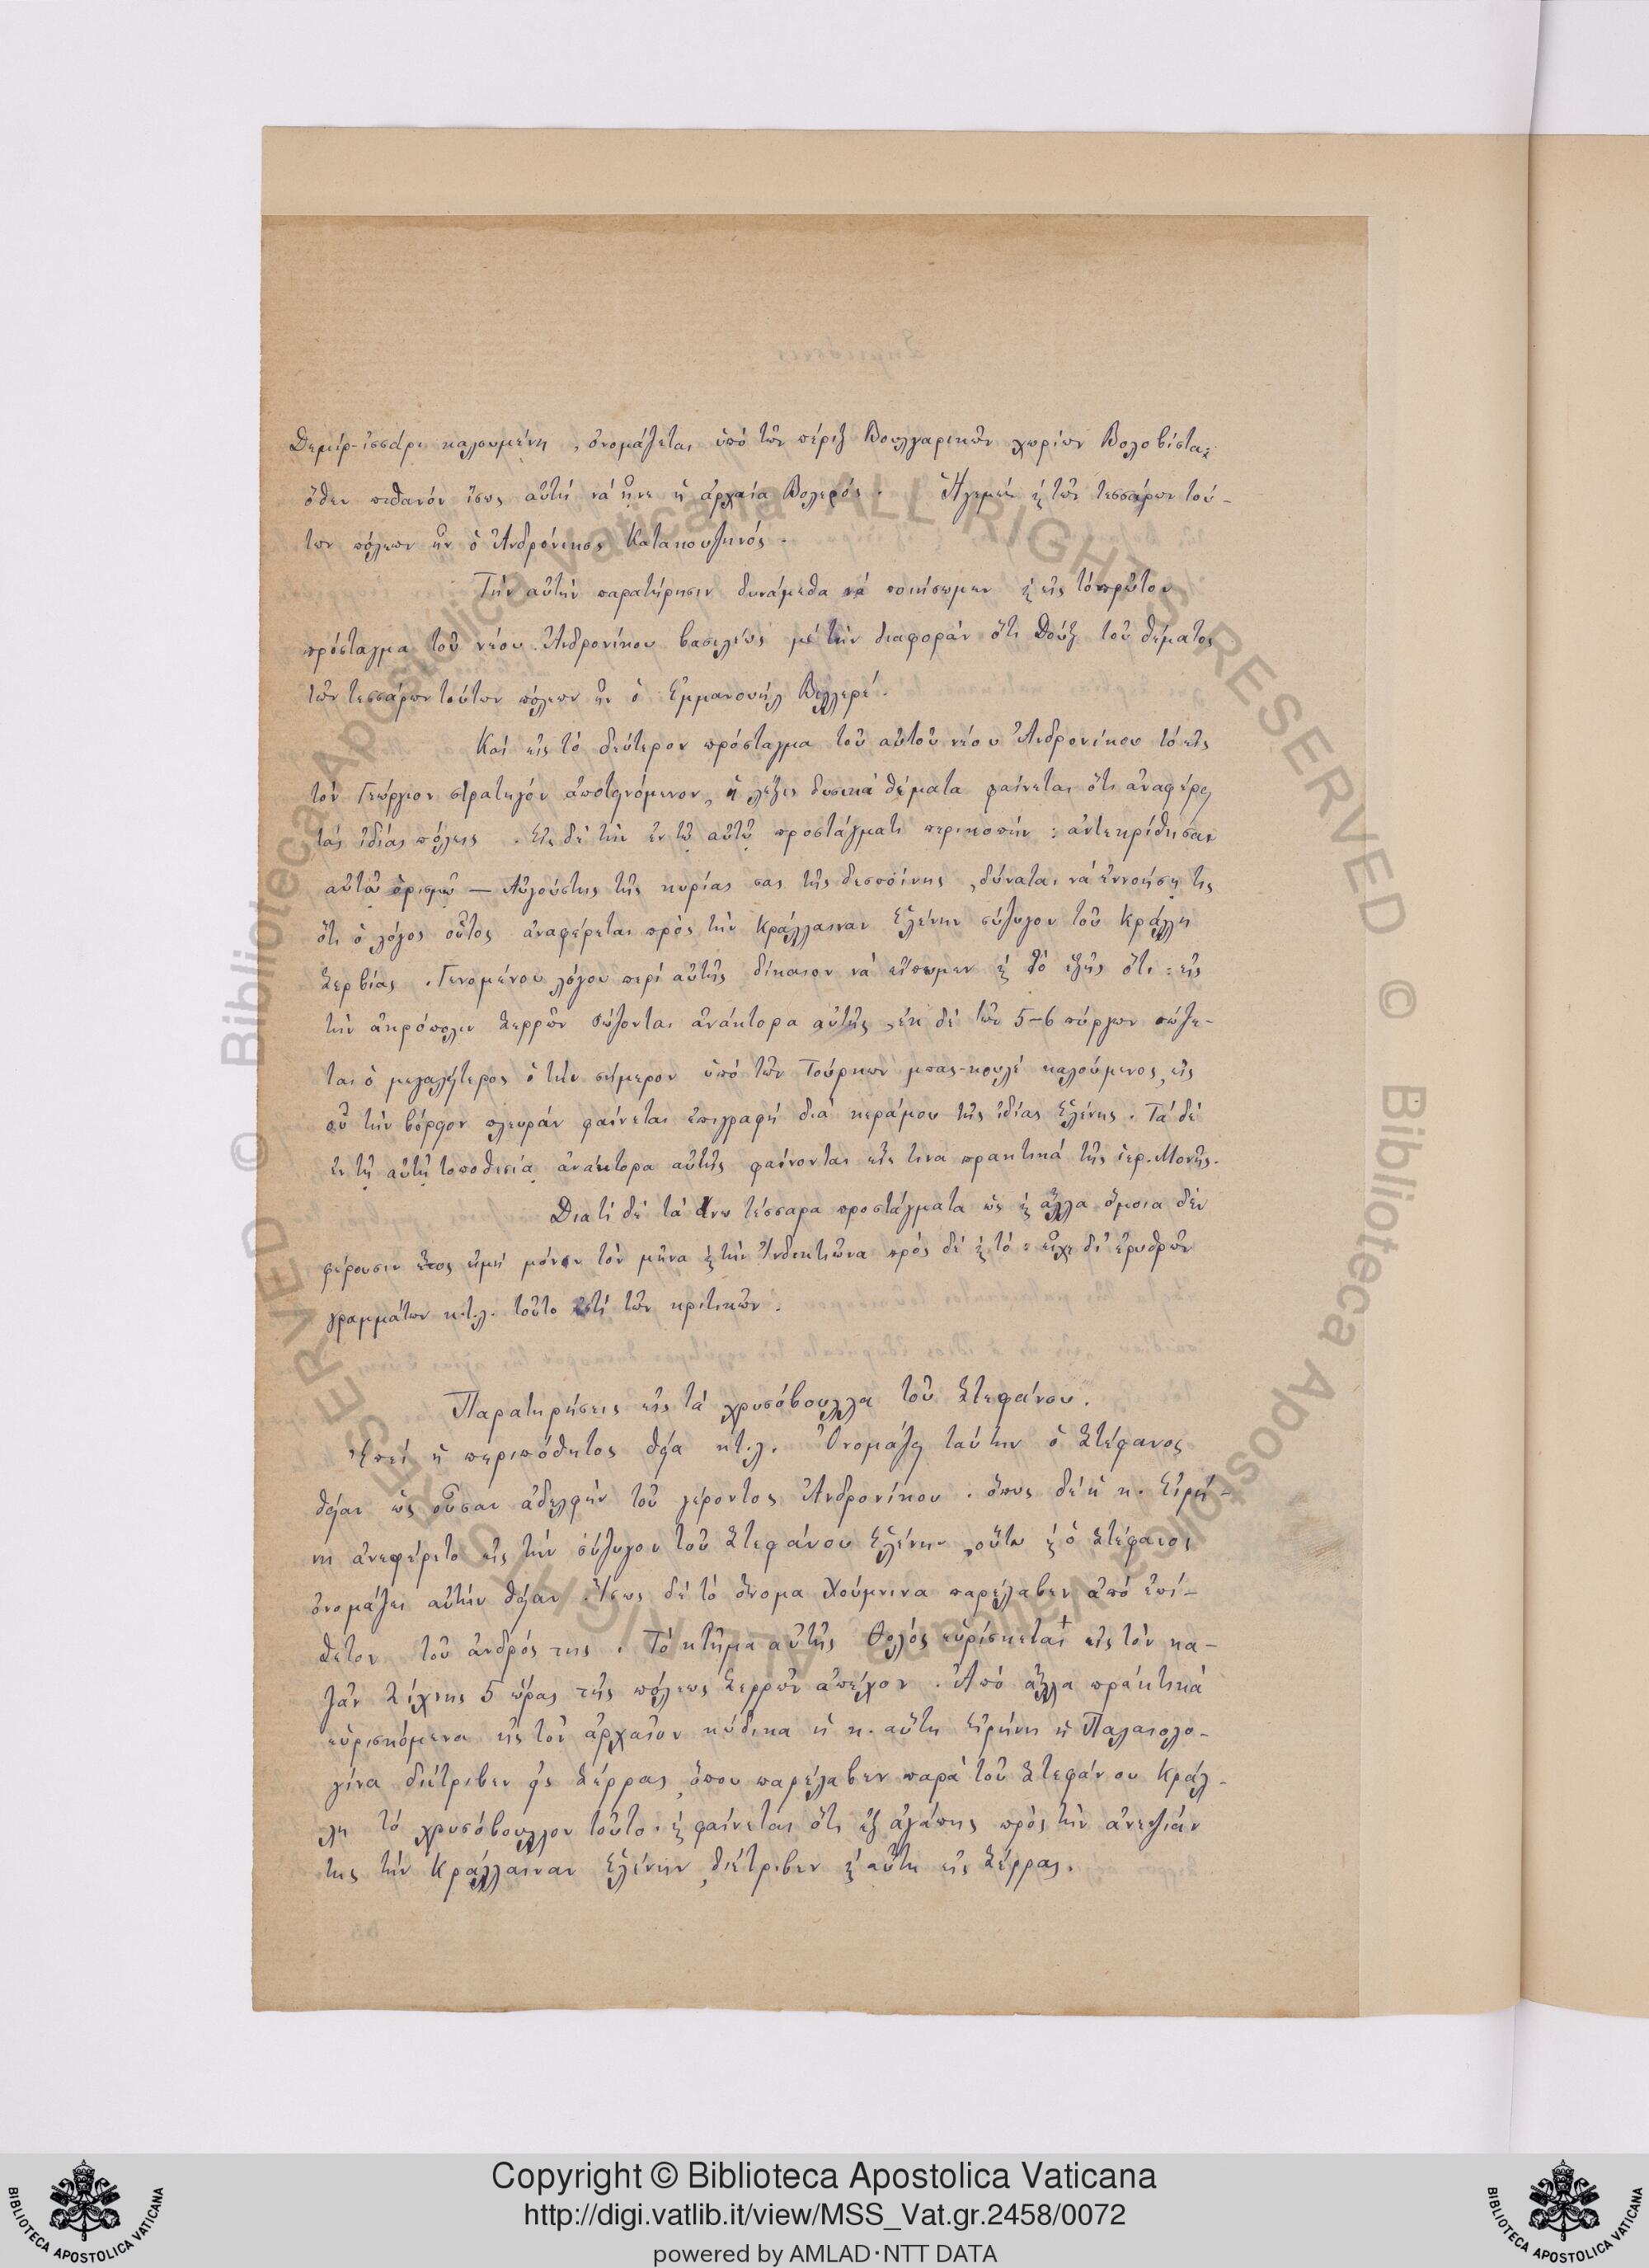 Δεμίρ-ἰσσάρι καλουμένη, ὀνομάζεται ὑπό τῶν πέριξ Βουλγαρικῶν χωρίων Βολοβίστα:
ὅθεν πιθανόν ἴσως αὐτή νά ἦνε ἡ ἀρχαία Βολερός. Ἡγεμών ϗ τῶν τεσσάρων τού-
των πόλεων ἦν ὁ Ἀνδρόνικος Κατακουζηνός.
Τήν αὐτήν παρατήρησιν δυνάμεθα νά ποιήσωμεν ϗ εἰς τό πρῶτον
πρόσταγμα τοῦ νέου Ἀνδρονίκου βασιλέως μέ τήν διαφοράν ὅτι Δούξ τοῦ θέματος
τῶν τεσσάρων τούτων πόλεων ἦν ὁ Ἐμμανουήλ Βολλερέ.
Καί εἰς τό δεύτερον πρόσταγμα τοῦ αὐτοῦ νέου Ἀνδρονίκου τό εἰς
τόν Γεώργιον στρατηγόν ἀποτεινόμενον, ἡ λέξις δυσικά θέματα φαίνεται ὅτι ἀναφέρει
τάς ἰδίας πόλεις. Εἰς δέ τήν ἐν τῷ αὐτῷ προστάγματι περικοπήν: ἀντεκρίθησαν
αὐτῷ ὁρισμῷ — Αὐγούστης τῆς κυρίας σας τῆς δεσποίνης, δύναται νά ἐννοήσῃ τις
ὅτι ὁ λόγος οὗτος ἀναφέρεται πρός τήν Κράλλαιναν Ἑλένην σύζυγον τοῦ Κράλλη
Σερβίας. Γενομένου λόγου περί αὐτῆς δίκαιον νά εἴπωμεν ϗ τό ἑξῆς ὅτι: εἰς
τήν ἀκρόπολιν Σερρῶν σώζονται ἀνάκτορα αὐτῆς, ἐκ δέ τῶν 5-6 πύργων σώζε-
ται ὁ μεγαλήτερος ὁ τήν σήμερον ὑπό τῶν Τούρκων μπας-κουλέ καλούμενος, εἰς
οὗ τήν βόρειον πλευράν φαίνεται ἐπιγραφή διά κεράμου τῆς ἰδίας Ἑλένης. Τά δέ
ἐν τῇ αὐτῇ τοποθεσίᾳ ἀνάκτορα αὐτῆς φαίνονται εἰς τινα πρακτικά τῆς ἱερ. Μονῆς.
Διατί δέ τά ἄνω τέσσαρα προστάγματα ὡς ϗ ἄλλα ὅμοια δέν
φέρουσιν ἔτος εἰμή μόνον τόν μῆνα ϗ τήν Ἰνδικτιῶνα πρός δέ ϗ τό: εἶχε δι' ἐρυθρῶν
γραμμάτων κ.τ.λ. τοῦτο ἐστί τῶν κριτικῶν.
Παρατηρήσεις εἰς τά χρυσόβουλλα τοῦ Στεφάνου.
Ἐπεί ἡ περιπόθητος θεία κτλ. Ὀνομάζει ταύτην ὁ Στέφανος
θείαν ὡς οὖσαν ἀδελφήν τοῦ γέροντος Ἀνδρονίκου. ὅπως δέ ἡ κ. Εἰρή-
νη ἀνεφέρετο εἰς τήν σύζυγον τοῦ Στεφάνου Ἑλένην, οὕτω ϗ ὁ Στέφανος
ὀνομάζει αὐτήν θείαν. Ἴσως δέ τό ὄνομα Χούμνινα παρέλαβεν ἀπό ἐπί-
θετον τοῦ ἀνδρός της. Τό κτῆμα αὐτῆς Θολός εὑρίσκεται + εἰς τόν κα-
ζᾶν Ζίχνης 5 ὥρας τῆς πόλεως Σερρῶν ἀπέχον. Ἀπό ἄλλα πρακτικά
εὑρισκόμενα εἰς τόν ἀρχαῖον κώδικα ἡ κ. αὕτη Εἰρήνη ἡ Παλαιολο-
γίνα διέτριβεν εἰς Σέρρας, ὅπου παρέλαβεν παρά τοῦ Στεφάνου Κράλ-
λη τό χρυσόβουλλον τοῦτο. ϗ φαίνεται ὅτι ἐξ ἀγάπης πρός τήν ἀνεψιάν
της τήν Κράλλαιναν Ἑλένην, διέτριβεν ϗ αὕτη εἰς Σέρρας.
Copyright © Biblioteca Apostolica Vaticana
http://digi.vatlib.it/view/MSS_Vat.gr.2458/0072
powered by AMLAD·NTT DATA
BIBLIOTECA APOSTOLICA VATICANA
BIBLIOTECA APOSTOLICA VATICANA
© Biblioteca Apostolica Vaticana ALL RIGHTS RESERVED
© Biblioteca Apostolica Vaticana ALL RIGHTS RESERVED